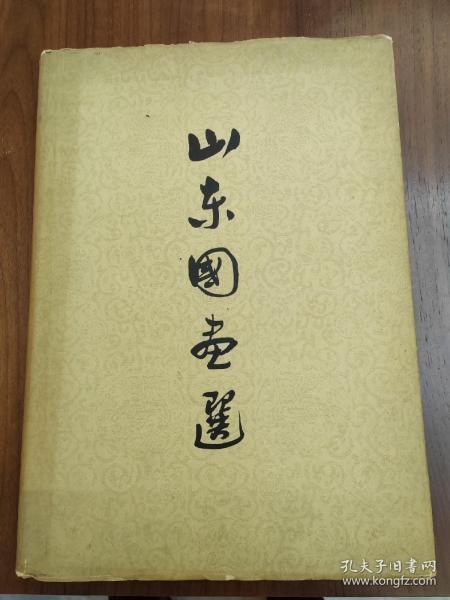 山东國画選
孔夫子旧书网
www.kongfz.com